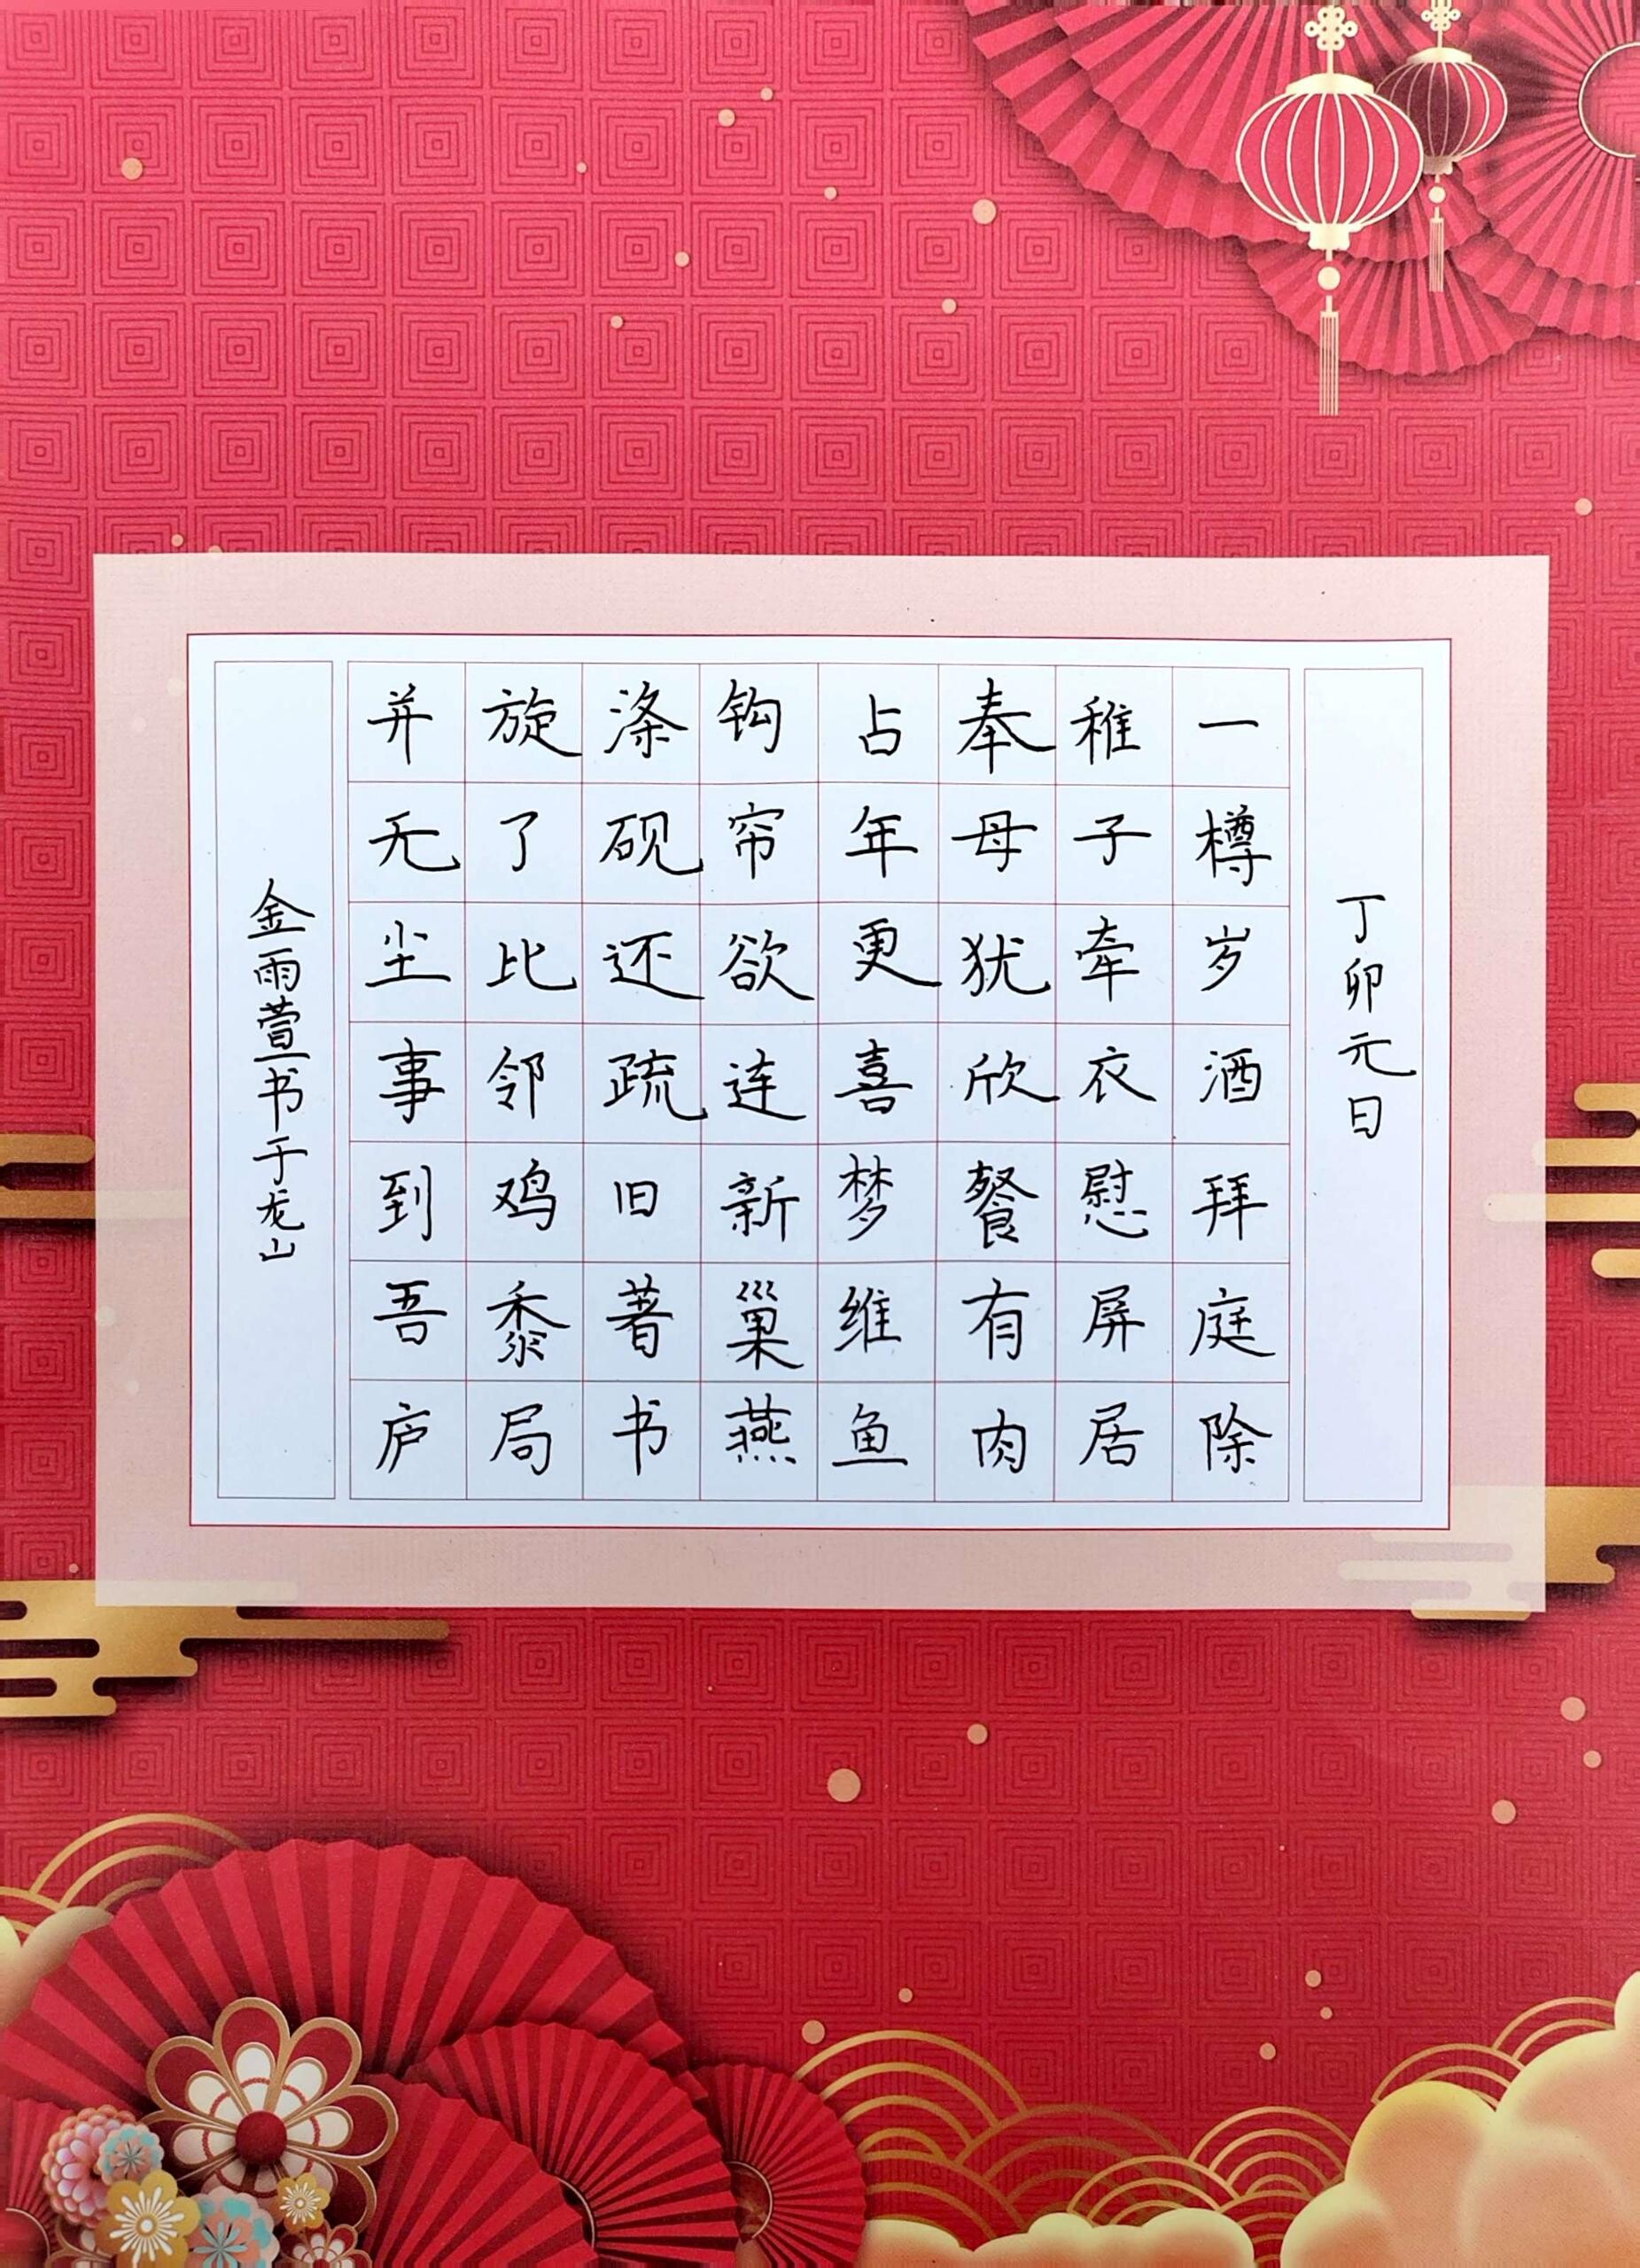 丁卯元日
一樽岁酒拜庭除
稚子牵衣慰屏居
奉母犹欣餐有肉
占年更喜梦维鱼
钩帘欲连新巢燕
涤砚还疏旧著书
旋了比邻鸡黍局
并无尘事到吾庐
金雨萱书于龙山